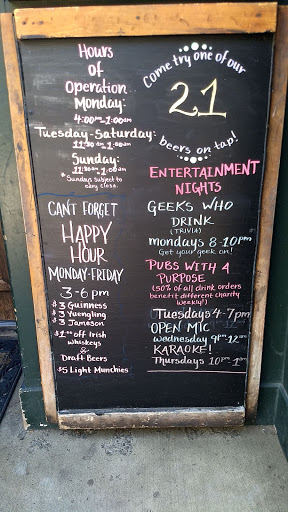 Hours
of
Operation
Monday:
4:00pm-1:00am
Tuesday-Saturday:
11:30am-1:00am
Sunday:
11:30am-1:00am
*Sundays subject to
early close.
CAN'T FORGET
HAPPY
HOUR
MONDAY-FRIDAY
3-6pm
$3 Guinness
$3 Yuengling
$3 Jameson
$1.00 off Irish
whiskeys
&
Draft Beers
$5 Light Munchies
Come try one of our
21
beers on tap!
ENTERTAINMENT
NIGHTS
GEEKS WHO
DRINK
(TRIVIA)
mondays 8-10pm
Get your geek on!
PUBS WITH A
PURPOSE
(50% of all drink orders
benefit different charity
weekly!)
Tuesdays 4-7pm
OPEN MIC
Wednesday 9pm-12am
KARAOKE!
Thursdays 10pm-1am